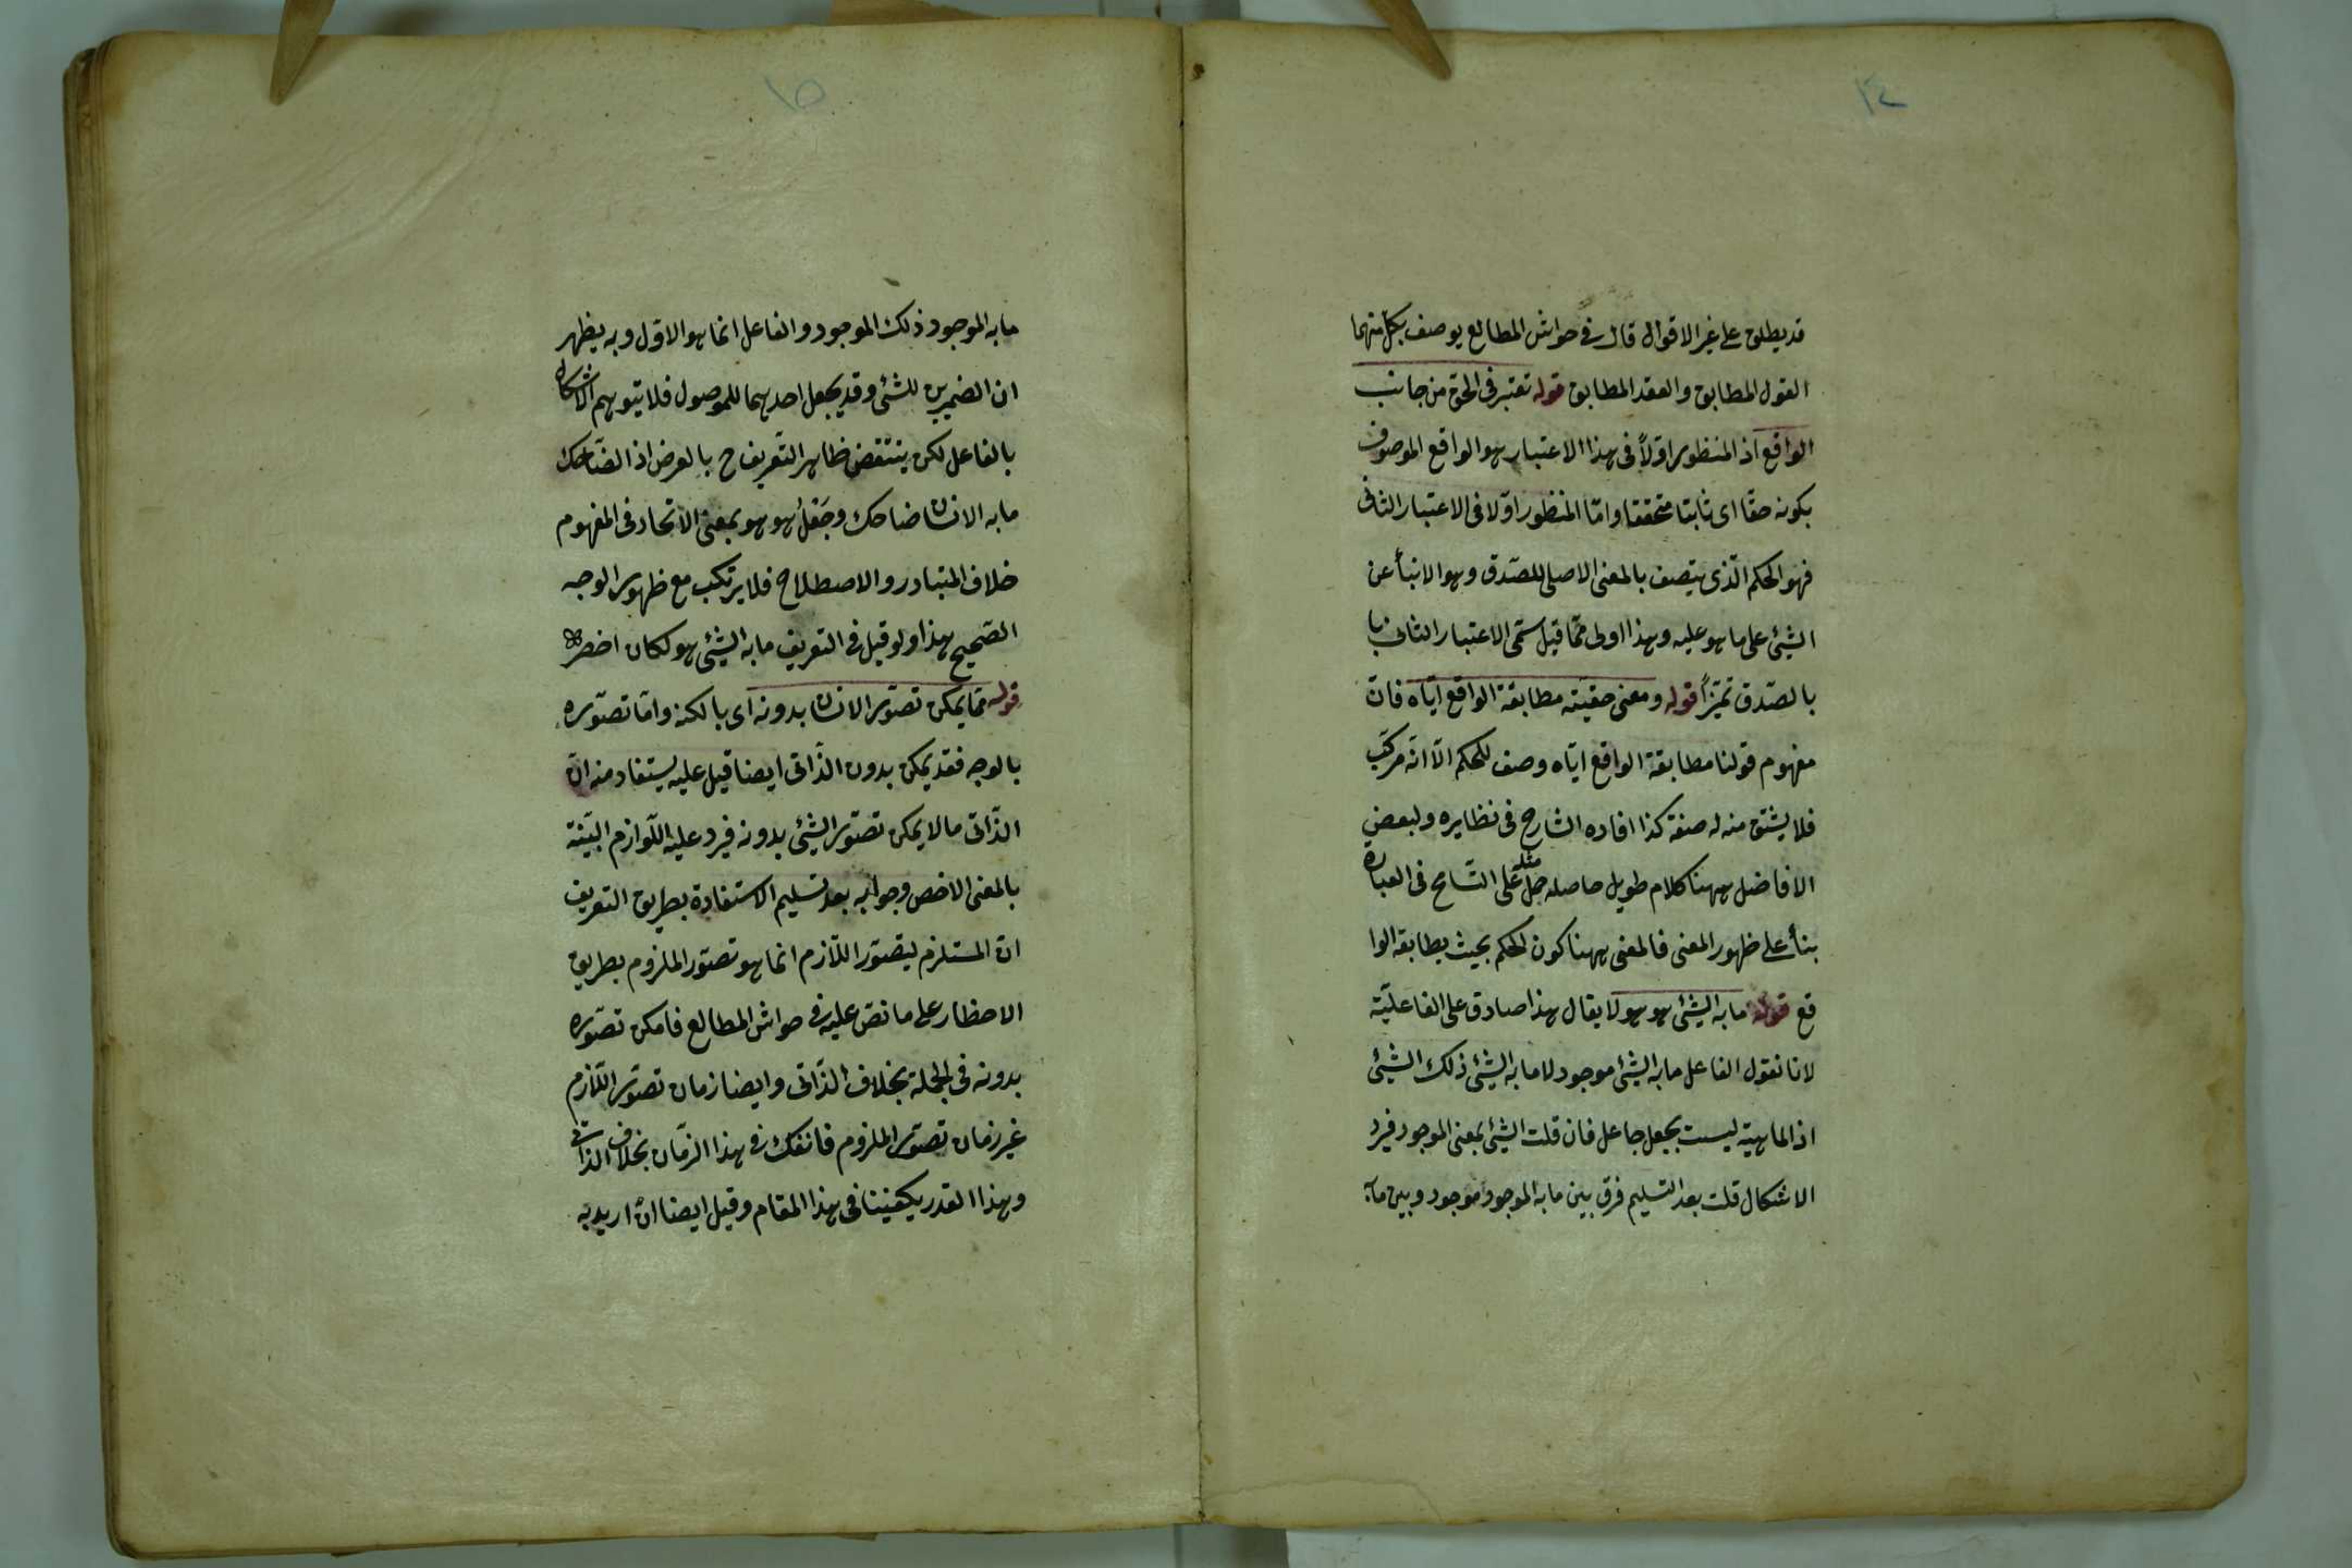 ١٤
قد يطلق على غير الاقوال قال في حواشي المطالع يوصف بكل منهما
القول المطابق والعقد المطابق قوله تعتبر في الحق من جانب
الواقع اذ المنظور اولاً في هذا الاعتبار هو الواقع الموصوف
بكونه حقّا اى ثابتا متحققا وامّا المنظور اوّلا فى الاعتبار الثانى
فهو الحكم الّذى يتصف بالمعنى الاصلى للصّدق وهو الانبأ عن
الشيئ على ما هو عليه وهذا اولى ممّا قيل سمّى الاعتبار الثانى با
بالصّدق تميّزاً قوله ومعنى حقيّته مطابقة الواقع ايّاه فانّ
مفهوم قولنا مطابقة الواقع ايّاه وصف للحكم الّا انّه مركّب
فلا يشتق منه له صفة كذا افاده الشارح فى نظايره ولبعض
الافاضل ههنا كلام طويل حاصله حمل مثله على التّسامح فى العبارة
بنأ على ظهور المعنى فالمعنى ههنا كون الحكم بحيث يطابقه الوا
قع قوله ما به الشيئ هو هو لا يقال هذا صادق على الفاعليّة
لانا نقول الفاعل ما به الشيئ موجود لا ما به الشيئ ذلك الشيئ
اذ الماهيّة ليست بجعل جاعل فان قلت الشيئ بمعنى الموجود فيرد
الاشكال قلت بعد التسليم فرق بين ما به الموجود موجود وبين ما
١٥
ما به الموجود ذلك الموجود والفاعل انما هو الاوّل وبه يظهر
ان الضميرين للشئ وقد يجعل احدهما للموصول فلا يتوهم الاشكال
بالفاعل لكن ينتقض ظاهر التّعريف ح بالعرض اذ الضّاحك
ما به الانسان ضاحك وجعل هو هو بمعنى الاتحاد فى المفهوم
خلاف المتبادر والاصطلاح فلا يرتكب مع ظهور الوجه
الصّحيح هذا ولو قيل فى التعريف ما به الشيئ هو لكان اخصر
قوله ممّا يمكن تصوّر الانسان بدونه اى بالكنه وامّا تصوّره
بالوجه فقد يمكن بدون الذّاتى ايضا قيل عليه يستفاد منه انّ
الذّاتى ما لا يمكن تصوّر الشيئ بدونه فيرد عليه اللّوازم البيّنة
بالمعنى الاخص وجوابه بعد تسليم الاستفادة بطريق التعريف
انّ المستلزم ليتصوّر اللّازم انما هو تصوّر الملزوم بطريق
الاحظار على ما نصّ عليه فى حواشى المطالع فامكن تصوّره
بدونه فى الجملة بخلاف الذّاتى وايضا زمان تصوّر اللّازم
غير زمان تصوّر الملزوم فانفك فى هذا الزّمان بخلاف الذاتى
وهذا القدر يكفينا فى هذا المقام وقيل ايضا ان اريد به